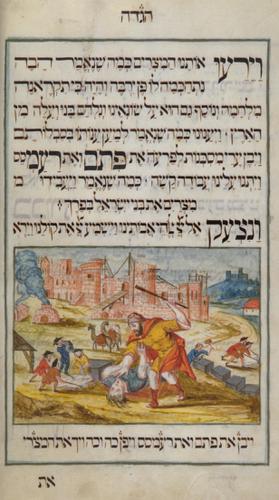 הגדה
וירעו אותנו המצרים כמה שנאמר הבה
נתחכמה לו פן ירבה והיה כי תקראנה
מלחמה ונוסף גם הוא על שונאינו ונלחם בנו ועלה מן
הארץ׃ ויענונו כמה שנאמר למען ענותו בסבלותם
ויבן ערי מסכנות לפרעה את פתם ואת רעמסס
ויתנו עלינו עבודה קשה׃ כמה שנאמר ויעבידו מ
מצרים את בני ישראל בפרך׃
ונצעק אל אבותינו וישמע את קולנו וירא
ויבן את פתם ואת רעמסס ויפן כה וכה ויך את המצרי
את